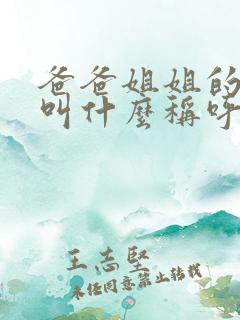 爸爸姐姐的
叫什麼稱呼
王志堅
未经同意禁止转载